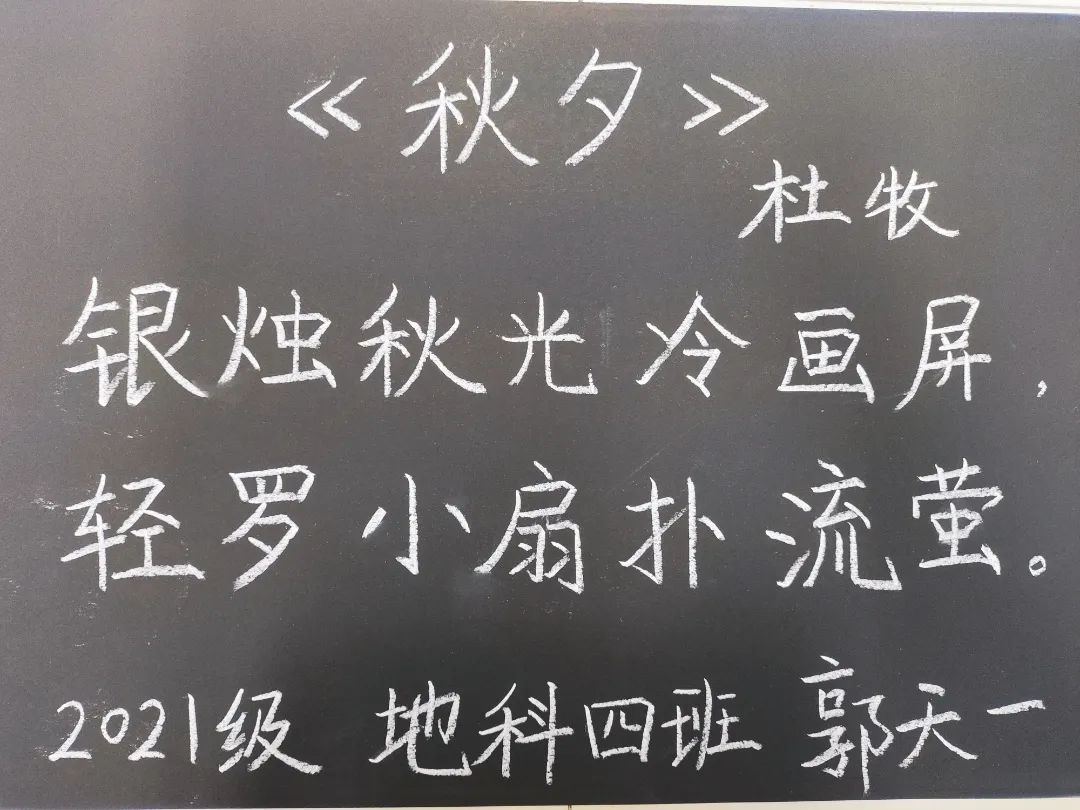 《秋夕》
杜牧
银烛秋光冷画屏,
轻罗小扇扑流萤。
2021级 地科四班 郭天一